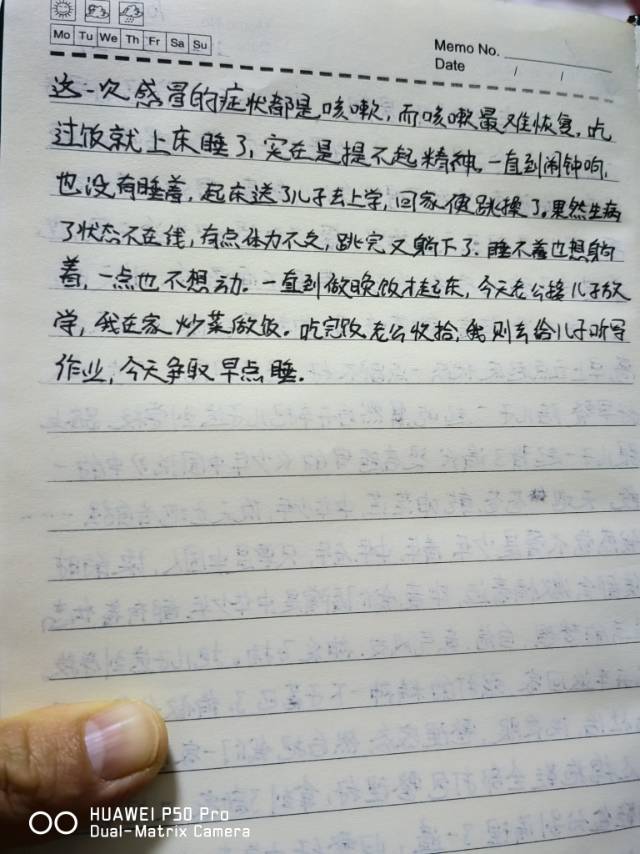 Mo Tu We Th Fr Sa Su
Memo No.
Date / /
这一次感冒的症状都是咳嗽，而咳嗽最难恢复，吃
过饭就上床睡了，实在是提不起精神。一直到闹钟响，
也没有睡着，起床送了儿子去上学，回家便跳操了。果然生病
了状态不在线，有点体力不支，跳完又躺下了。睡不着也想躺
着，一点也不想动。一直到做晚饭才起床，今天老公接儿子放
学，我在家炒菜做饭。吃完饭老公收拾，我则去给儿子听写
作业，今天争取早点睡.
HUAWEI P50 Pro
Dual-Matrix Camera